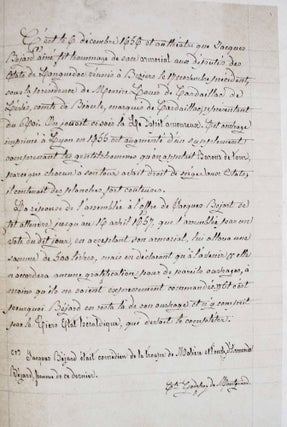 C'est le 6 décembre 1656 et au théâtre que Jacques
Béjard l'aîné fit hommage de son armorial aux députés des
Etats de Languedoc, réunis à Béziers le 17 novembre précédent,
sous la présidence de Messire Louis de Cardailhac de
Lévis, comte de Bioule, marquis de Cardailhac, représentant
du Roi. On jouait ce soir là le Dépit amoureux. Cet ouvrage
imprimé à Lyon en 1655 est augmenté d'un supplément
comprenant les gentilshommes qu'on appelait Barons de tour,
parce que chacun à son tour, avait droit de siéger aux Etats;
il contenait des planches fort curieuses.
La réponse de l'assemblée à l'offre de Jacques Béjart se
fit attendre jusqu'au 16 avril 1657, que l'assemblée par un
vote du dit jour, en acceptant son armorial, lui alloua une
somme de 500 livres, mais en déclarant qu'à l'avenir elle
n'accordera aucune gratification pour de pareils ouvrages, à
moins qu'ils ne soient expressément commandés. C'est
pourquoi Béjard en resta là de son ouvrage et n'y construisit
pas le Tiers Etat héraldique, qui devait le compléter.
Jacques Béjard était comédien de la troupe de Molière et
Béjard, femme de ce dernier.